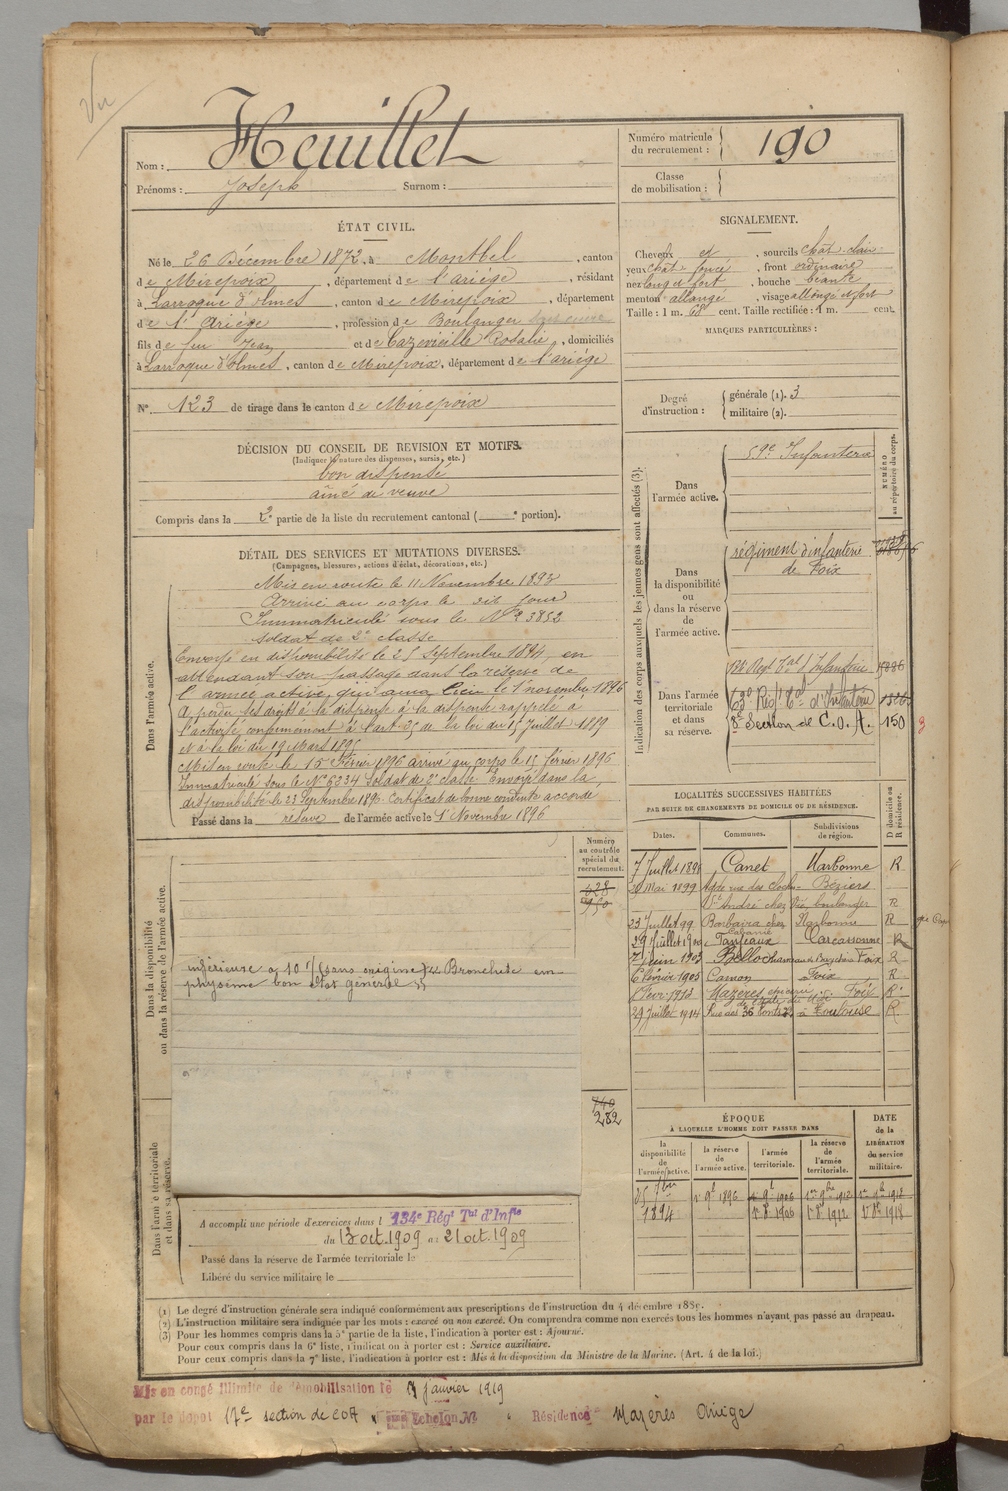 Vu
Nom : Heuillet
Prénoms : Joseph Surnom :
Numéro matricule du recrutement : 190
Classe de mobilisation :
ÉTAT CIVIL.
Né le 26 Décembre 1872, à Montbel, canton
de Mirepoix, département de l'ariége, résidant
à Larroque d'olmes, canton de Mirepoix, département
de l'Ariége, profession de Boulanger
fils de feu Jean et de Cazevieille Rosalie, domiciliés
à Larroque d'Olmes, canton de Mirepoix, département de l'ariége
N° 123 de tirage dans le canton de Mirepoix
SIGNALEMENT.
Cheveux et, sourcils chât. clair
yeux chât foncé, front ordinaire
nez long et fort, bouche béante
menton allongé, visage allongé et fort
Taille : 1 m. 68 cent. Taille rectifiée : 1 m. cent.
MARQUES PARTICULIÈRES :
Degré d'instruction : générale (1). 3
militaire (2).
DÉCISION DU CONSEIL DE REVISION ET MOTIFS.
(Indiquer la nature des dispenses, sursis, etc.)
bon dispensé
aîné de veuve
Compris dans la 2e partie de la liste du recrutement cantonal ( e portion).
DÉTAIL DES SERVICES ET MUTATIONS DIVERSES.
(Campagnes, blessures, actions d'éclat, décorations, etc.)
Dans l'armée active.
Mis en route le 11 Novembre 1893
Arrivé au corps le dit jour
Immatriculé sous le N° 23852
soldat de 2e classe
Envoyé en disponibilité le 25 Septembre 1894, en
attendant son passage dans la réserve de
l'armée active, qui aura lieu le 1er novembre 1896
A perdu ses droits à la dispense à la dispense rappelé à
l'activité conformément à l'art 25 de la loi du 15 Juillet 1889
et à la loi du 19 Mars 1895
Mis en route le 15 Février 1896 arrivé au corps le 15 février 1896
Immatriculé sous le N° 6334 soldat de 2e classe. Envoyé dans la
disponibilité le 23 Septembre 1896. Certificat de bonne conduite accordé
Passé dans la réserve de l'armée active le 1er Novembre 1896
Indication des corps auxquels les jeunes gens sont affectés (3).
NUMÉRO au répertoire du corps.
Dans l'armée active.
59e Infanterie
Dans la disponibilité ou dans la réserve de l'armée active.
régiment d'infanterie
de Foix
Dans l'armée territoriale et dans sa réserve.
134 Regt Tal d'Infanterie
Régt Tal d'Infanterie
8e Section de C.O.A. 150
LOCALITÉS SUCCESSIVES HABITÉES
PAR SUITE DE CHANGEMENTS DE DOMICILE OU DE RÉSIDENCE.
Dates. Communes. Subdivisions de région. D domicile ou R résidence.
7 Juillet 1898 Canet Narbonne R
20 Mai 1899 Agde rue des Béziers
St André chez boulanger R
23 Juillet 99 Barbaira chez Narbonne R
29 Juillet 1900 Carcassonne R
Juin 1903 Belloc Foix R
6 février 1905 Camon Foix R
Fevr. 1913 Mazères Foix R
29 Juillet 1914 Rue des 36 Ponts à Toulouse R
Dans la disponibilité ou dans la réserve de l'armée active.
Numéro au contrôle spécial du recrutement.
628
950
inférieure à 10 % (sans origine) Bronchite em-
physème bon état général
Dans l'armée territoriale et dans sa réserve.
740
282
ÉPOQUE
À LAQUELLE L'HOMME DOIT PASSER DANS
la disponibilité de l'armée active. la réserve de l'armée active. l'armée territoriale. la réserve de l'armée territoriale.
DATE de la LIBÉRATION du service militaire.
25 7bre 1er 9b 1896 1er 9b 1906 1er 9bre 1912 1er 9b 1918
1894 1906 1912 1918
A accompli une période d'exercices dans l 134e Régt Tal d'Infie
du 13 oct. 1909 au 21 oct. 1909
Passé dans la réserve de l'armée territoriale le
Libéré du service militaire le
(1) Le degré d'instruction générale sera indiqué conformément aux prescriptions de l'instruction du 4 décembre 1889.
(2) L'instruction militaire sera indiquée par les mots : exercé ou non exercé. On comprendra comme non exercés tous les hommes n'ayant pas passé au drapeau.
(3) Pour les hommes compris dans la 5e partie de la liste, l'indication à porter est : Ajourné.
Pour ceux compris dans la 6e liste, l'indication à porter est : Service auxiliaire.
Pour ceux compris dans la 7e liste, l'indication à porter est : Mis à la disposition du Ministre de la Marine. (Art. 4 de la loi.)
Mis en congé illimité de démobilisation le janvier 1919
par le dépot 17e section de COA Echelon N° Résidence Mazères Ariège